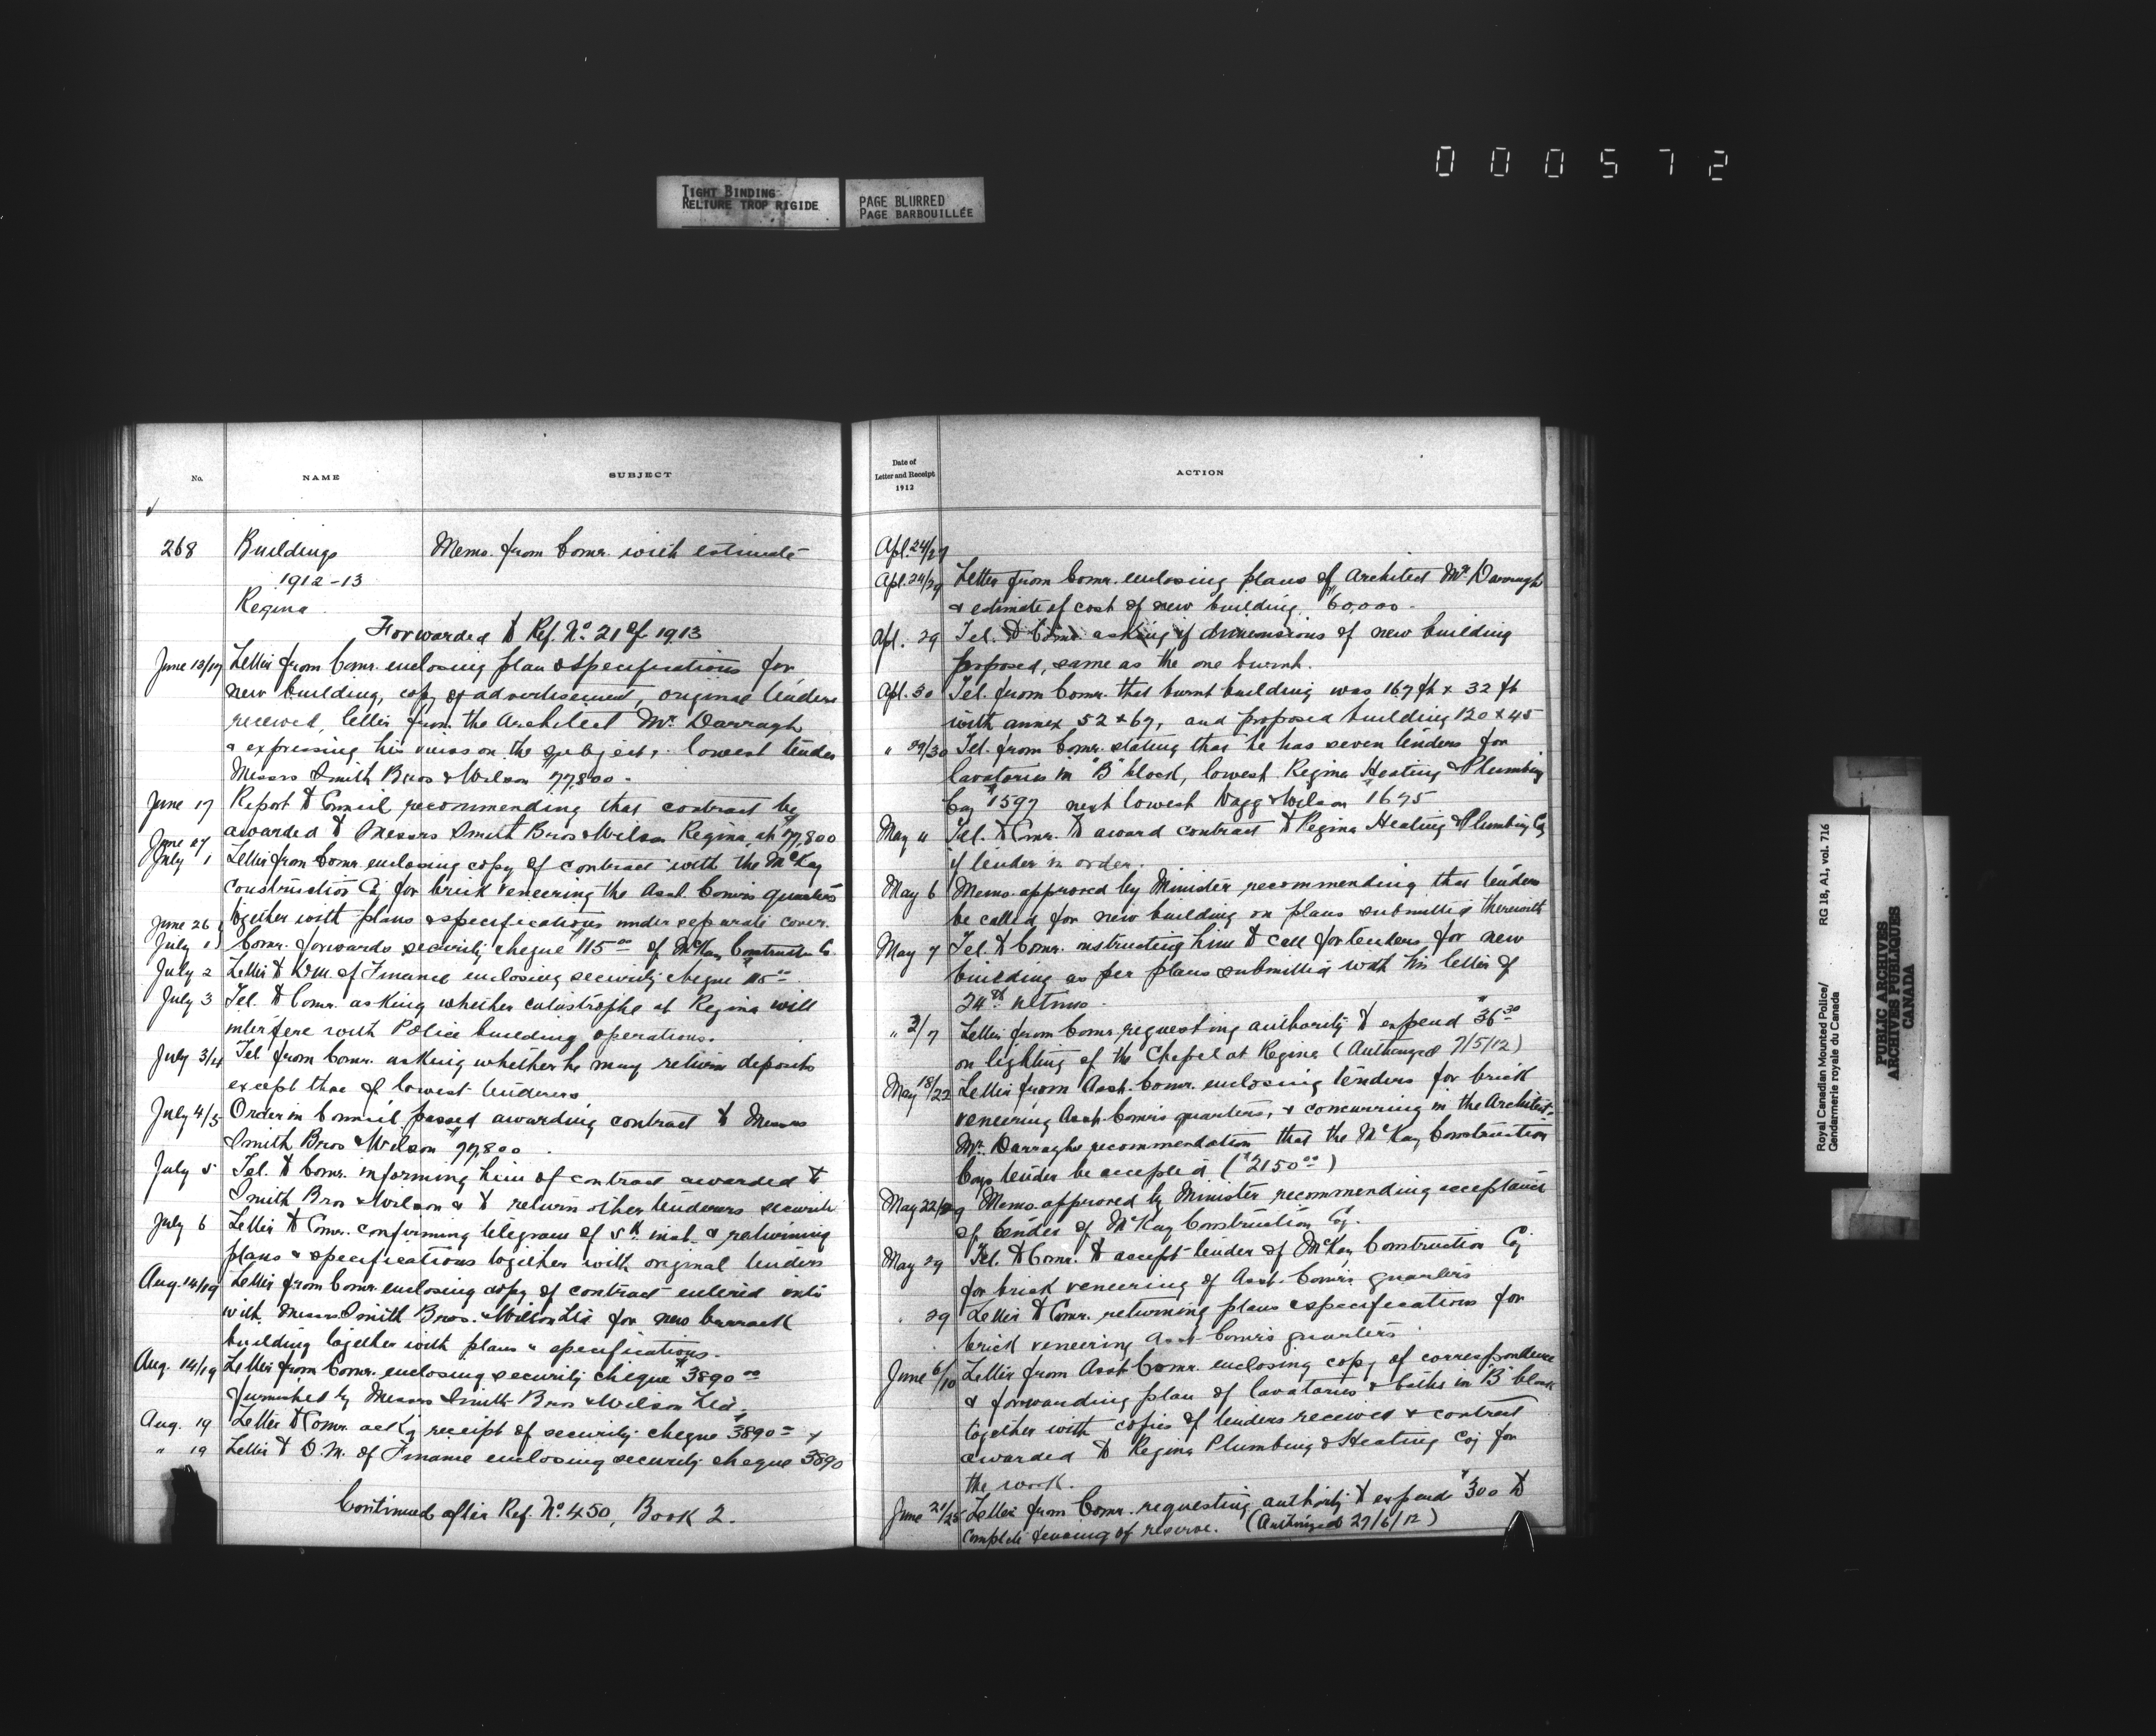 000572
TIGHT BINDING
RELIURE TROP RIGIDE
PAGE BLURRED
PAGE BARBOUILLÉE
No.
NAME
SUBJECT
268
Buildings
Memo. from Comr. with estimate
1912-13
Regina
Forwarded to Ref. No 21 of 1913
June 13/17 Letter from Comr. enclosing plan & specifications for
new building, copy of advertisement, original tenders
received, letter from the Architect Mr. Darragh
& expressing his views on the subject, lowest tender
Messrs Smith Bros & Wilson $77,800 -
June 17 Report to Council recommending that contract be
awarded to Messrs Smith Bros & Wilson Regina, at $77,800
June 27
July 1 Letter from Comr. enclosing copy of contract with the McKay
Construction Coy for brick veneering the Asst. Comr's quarters
together with plans & specifications under separate cover.
June 26
July 1 Comr. forwards security cheque $115 00 of McKay Construction Co
July 2 Letter to D.M. of Finance enclosing security cheque $115 00
July 3 Tel. to Comr. asking whether catastrophe at Regina will
interfere with Police building operations.
July 3/4 Tel. from Comr. asking whether he may return deposits
except that of lowest tenderers
July 4/5 Order in Council passed awarding contract to Messrs
Smith Bros & Wilson $77,800
July 5 Tel. to Comr. informing him of contract awarded to
Smith Bros & Wilson & to return other tenderers security
July 6 Letter to Comr. confirming telegram of 5th inst. & returning
plans & specifications together with original tenders
Aug. 14/19 Letter from Comr. enclosing copy of contract entered into
with Messrs Smith Bros. & Wilson Ltd for new barrack
building together with plans & specifications.
Aug. 14/19 Letter from Comr. enclosing security cheque $3890 00
furnished by Messrs Smith Bros & Wilson Ltd.
Aug. 19 Letter to Comr. ackg receipt of security cheque $3890 =
" 19 Letter to D.M. of Finance enclosing security cheque $3890
Continued after Ref. No. 450, Book 2.
Date of
Letter and Receipt
1912
ACTION
Apl. 24/27
Apl. 24/29 Letter from Comr. enclosing plans of Architect Mr. Darragh
& estimate of cost of new building, $60,000 -
Apl. 29 Tel. to Comr. asking if dimensions of new building
proposed, same as the one burnt.
Apl. 30 Tel. from Comr. that burnt building was 167 ft x 32 ft
with annex 52 x 67, and proposed building 120 x 45
" 29/30 Tel. from Comr. stating that he has seven tenders for
lavatories in "B" block, lowest Regina Heating & Plumbing
Coy $1597 next lowest Vagg & Wilson $1675
May 4 Tel. to Comr. to award contract to Regina Heating & Plumbing Coy
if tender in order.
May 6 Memo. approved by Minister recommending that tenders
be called for new building on plans submitted therewith
May 7 Tel. to Comr. instructing him to call for tenders for new
building as per plans submitted with his letter of
24th ultimo.
" 2/7 Letter from Comr. requesting authority to expend $36 30
on lighting of the Chapel at Regina (Authorized 7/5/12)
May 18/22 Letter from Asst. Comr. enclosing tenders for brick
veneering Asst. Comr's quarters, & concurring in the Architect,
Mr. Darragh's recommendation that the McKay Construction
Coys tender be accepted ($2150 00)
May 22/29 Memo. approved by Minister recommending acceptance
of tender of McKay Construction Coy.
May 29 Tel. to Comr. to accept tender of McKay Construction Coy
for brick veneering of Asst. Comr's quarters
" 29 Letter to Comr. returning plans & specifications for
brick veneering Asst Comr's quarters
June 6/10 Letter from Asst. Comr. enclosing copy of correspondence
& forwarding plan of lavatories & baths in "B" block
together with copies of tenders received & contract
awarded to Regina Plumbing & Heating Coy for
the work.
June 21/25 Letter from Comr. requesting authority to expend $300 to
complete fencing of reserve. (Authorized 27/6/12)
Royal Canadian Mounted Police/
Gendarmerie royale du Canada
RG 18, A1, vol. 716
PUBLIC ARCHIVES
ARCHIVES PUBLIQUES
CANADA